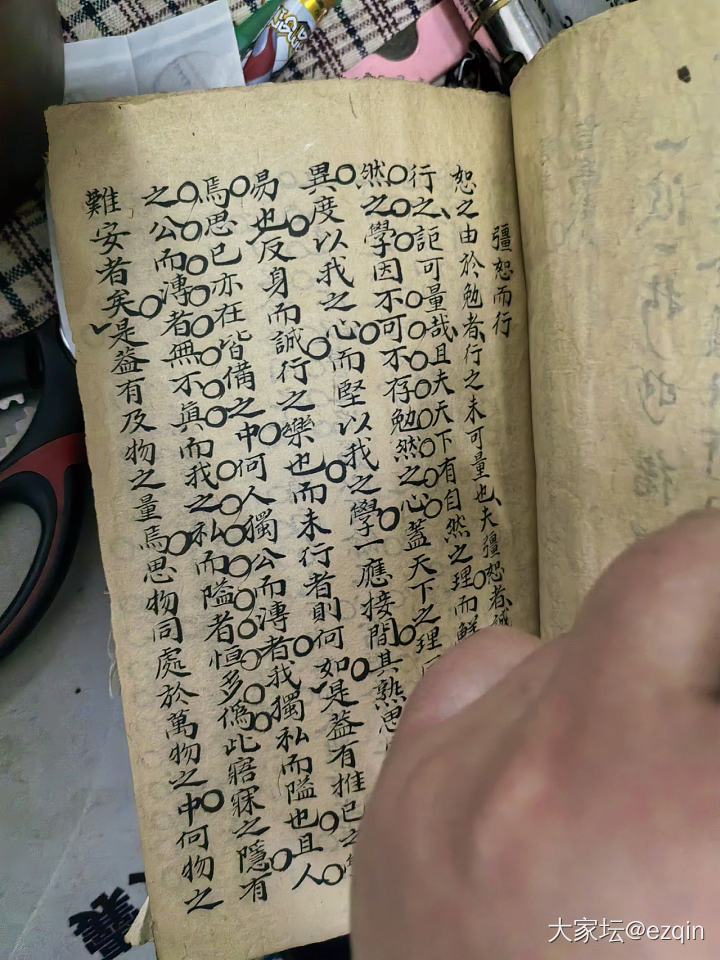 彊恕而行
恕之由於勉者、行之未可量也、夫彊恕者、
行之、詎可量哉、且夫天下有自然之理而鮮
然之學因不可不存勉然之心蓋天下之理
異度以我之心而堅以我之學一應接間其熟思
易也反身而誠行之樂也而未行者則何如是益有推已之
焉思已亦在皆備之中何人獨公而溥者我獨私而隘也且人
之公而溥者無不真而我之私而隘者恒多偽此寤寐之隱有
難安者矣是益有及物之量焉思物同處於萬物之中何物之
大家坛@ezqin